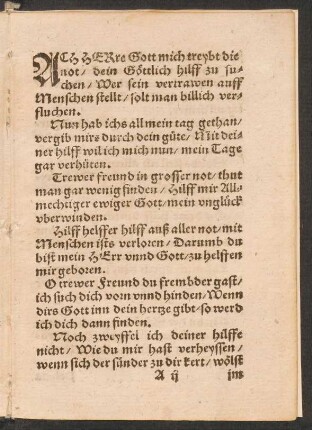 ACH HERre Gott mich treybt die
not/ dein Göttlich hilff zu su-
chen/ Wer sein vertrawen auff
Menschen stellt/ solt man billich ver-
fluchen.
Nun hab ichs all mein tag gethan/
vergib mirs durch dein güte/ Mit dei-
ner hilff wil ich mich nun/ mein Tage
gar verhüten.
Trewer freund in grosser not/ thut
man gar wenig finden/ Hilff mir All-
mechtiger ewiger Gott/ mein vnglück
vberwinden.
Hilff helffer hilff auß aller not/ mit
Menschen ists verloren/ Darumb du
bist mein HErr vnnd Gott/ zu helffen
mir geboren.
O trewer Freund du frembder gast/
ich such dich vorn vnnd hinden/ Wenn
dirs Gott inn dein hertze gibt/ so werd
ich dich dann finden.
Noch zweyffel ich deiner hilffe
nicht/ Wie du mir hast verheyssen/
wenn sich der sünder zu dir kert/ wölst
A ij im